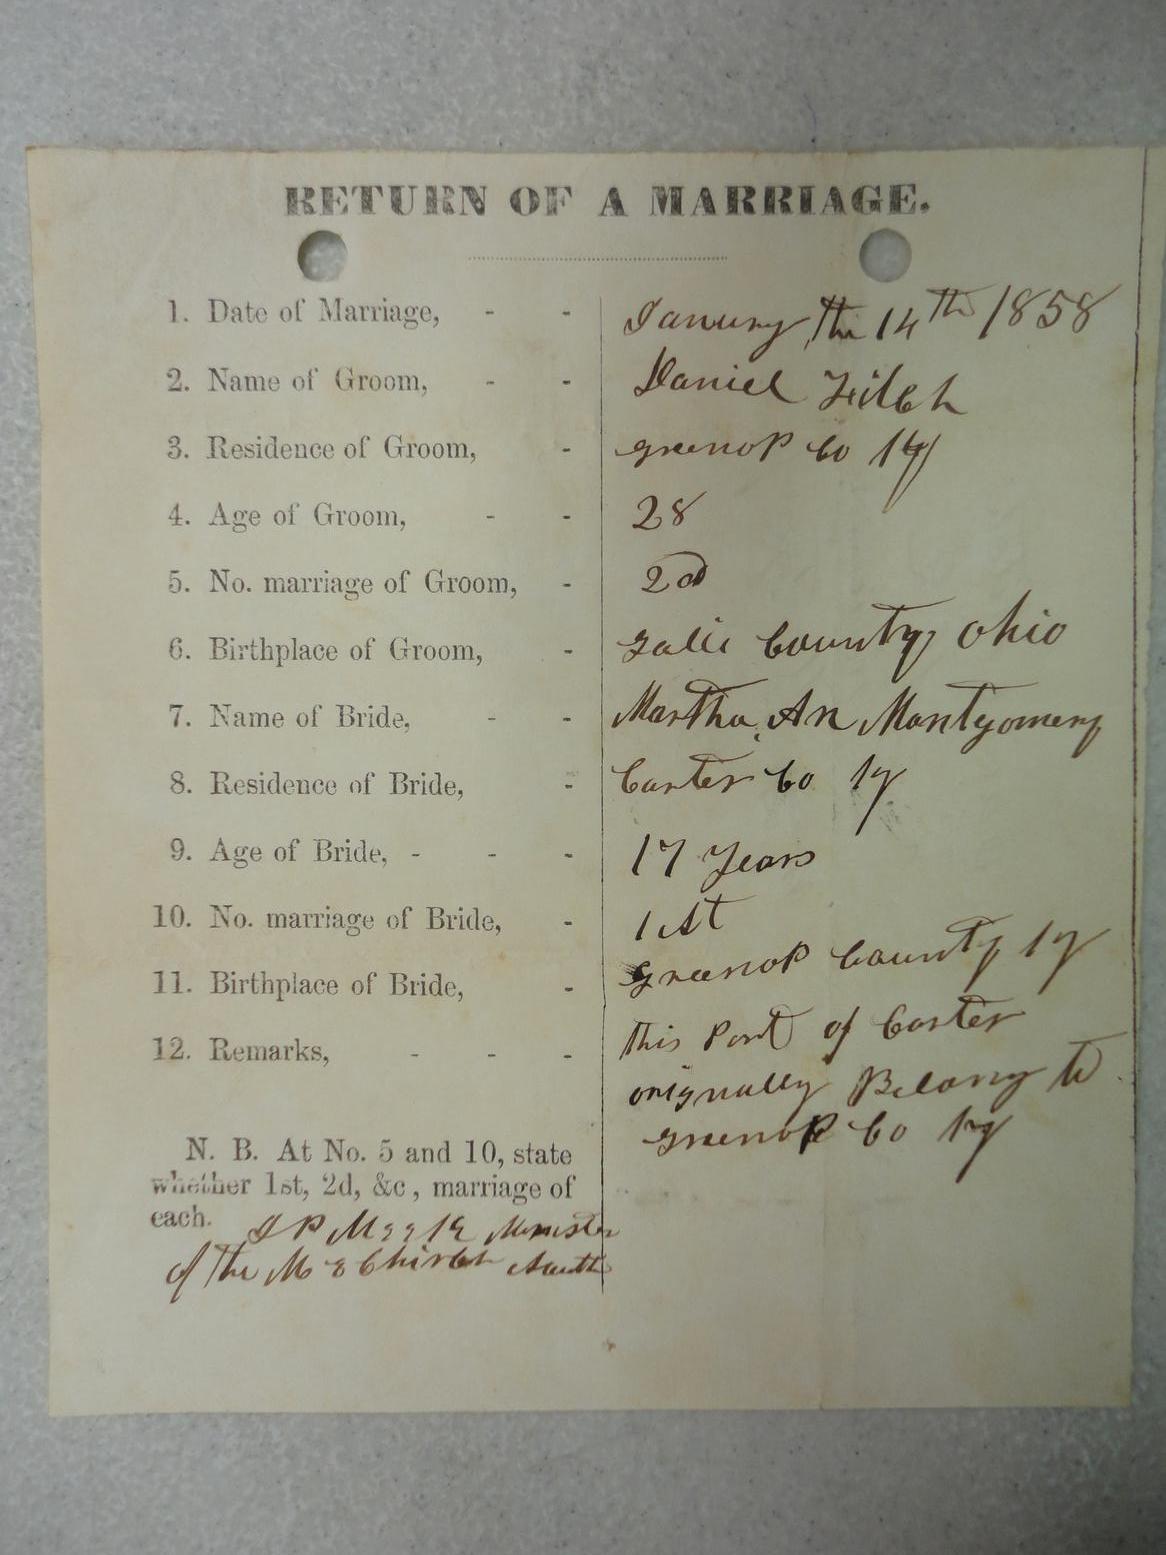 RETURN OF A MARRIAGE.
1. Date of Marriage, - - January the 14th 1858
2. Name of Groom, - - Daniel
3. Residence of Groom, - greenoP Co Ky
4. Age of Groom, - - 28
5. No. marriage of Groom, - 2d
6. Birthplace of Groom, - galie County Ohio
7. Name of Bride, - - Martha An Montgomery
8. Residence of Bride, - Carter Co Ky
9. Age of Bride, - - - 17 Years
10. No. marriage of Bride, - 1st
11. Birthplace of Bride, - greenoP County Ky
12. Remarks, - - - this Part of Carter
originally Belong to
greenoP Co Ky
N. B. At No. 5 and 10, state
whether 1st, 2d, &c, marriage of
each. J P Minister
of the M E Church South